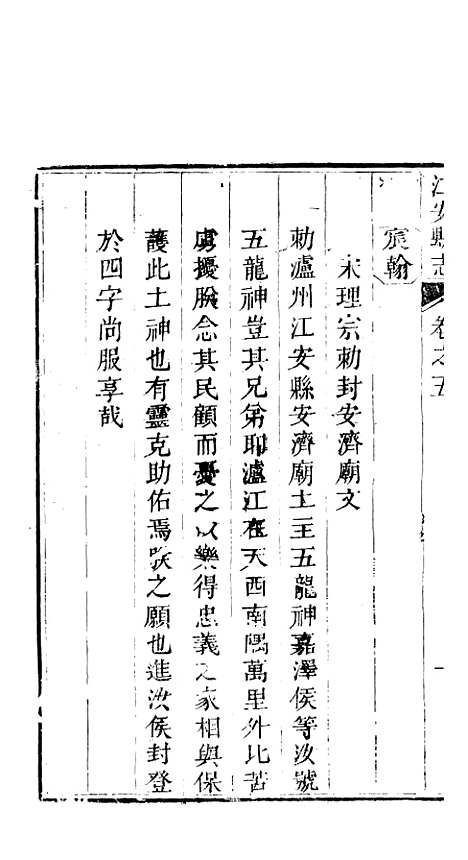 江安縣志 卷之五 一
宸翰
宋理宗勅封安濟廟文
勅瀘州江安縣安濟廟土主五龍神嘉澤侯等汝號
五龍神豈其兄弟耶瀘江在天西南隅萬里外比苦
虜擾朕念其民顧而憂之以樂得忠義之家相與保
護此土神也有靈克助佑焉朕之願也進汝侯封登
於四字尚服享哉